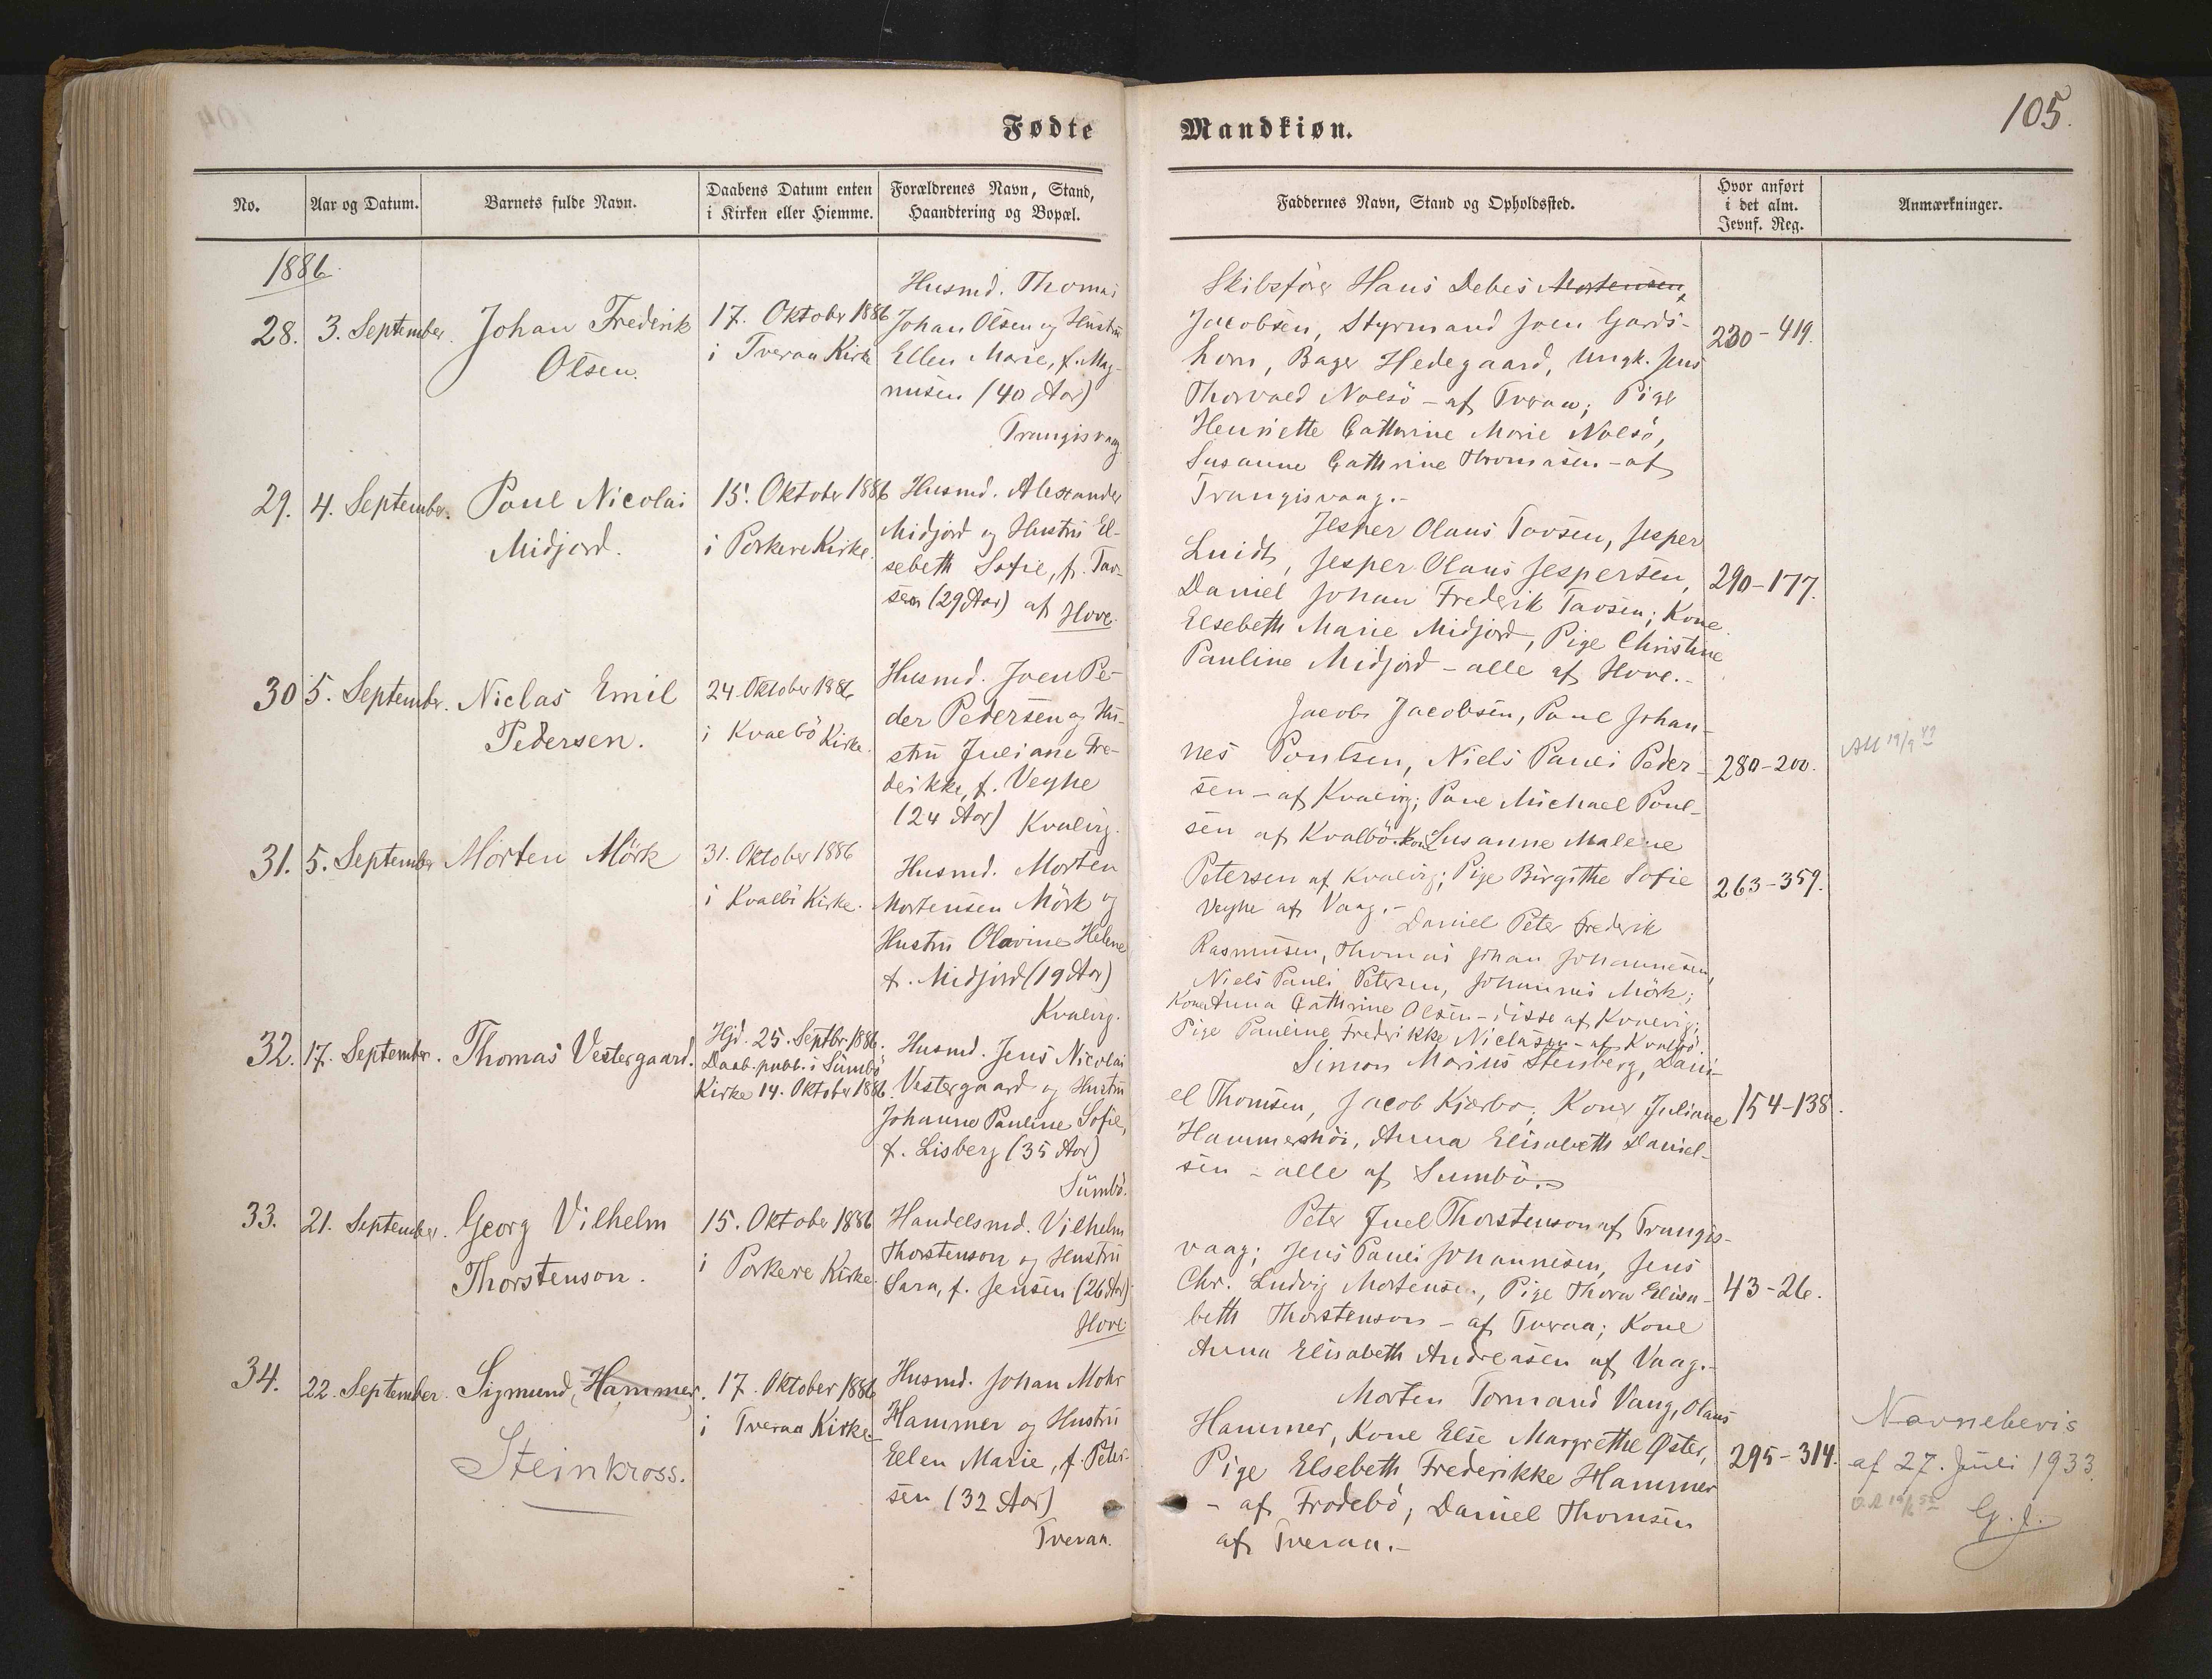 Fødte
Mandkiøn.
105.
No.
Aar og Datum.
Barnets fulde Navn.
Daabens Datum enten
i Kirken eller Hiemme.
Forældrenes Navn, Stand,
Haandtering og Bopæl.
Faddernes Navn, Stand og Opholdssted.
Hvor anført
i det alm.
Jevnf. Reg.
Anmærkninger.
1886.
28.
3. September.
Johan Frederik
Olsen.
17. Oktober 1886
i Tveraa Kirke
Husmd. Thomas
Johan Olsen og Hustru
Ellen Marie, f. Mag-
nusen (40 Aar)
Trangisvaag.
Skibsfører Hans Debes Mortensen,
Jacobsen, Styrmand Joen Gards-
horn, Bager Hedegaard, Ungk. Jens
Thorvald Nolsö - af Tveraa; Pige
Henriette Cathrine Marie Nolsö,
Susanne Cathrine Thomasen - af
Trangisvaag.-
230-419.
29.
4. September.
Poul Nicolai
Midjord.
15. Oktober 1886
i Porkere Kirke.
Husmd. Alexander
Midjord og Hustru El-
sebeth Sofie, f. Tav-
sen (29 Aar) af Hove.
Jesper Olaus Tavsen, Jesper
Luidt, Jesper Olaus Jespersen,
Daniel Johan Frederik Tavsen; Kone
Elsebeth Marie Midjord, Pige Christine
Pauline Midjord - alle af Hove.-
290-177.
30
5. September.
Niclas Emil
Pedersen.
24. Oktober 1886
i Kvalbö Kirke.
Husmd. Joen Pe-
der Pedersen og Hu-
stru Juliane Fre-
derikke, f. Veyhe
(24 Aar) Kvalvig.
Jacob Jacobsen, Poul Johan-
nes Poulsen, Niels Pauli Peder-
sen - af Kvalvig; Poul Michael Poul-
sen af Kvalbö. Kone Susanne Malene
Petersen af Kvalvig; Pige Birgithe Sofie
Veyhe af Vaag.-
280-200.
31.
5. September
Morten Mörk
31. Oktober 1886
i Kvalbö Kirke.
Husmd. Morten
Mortensen Mörk og
Hustru Olavine Helene
f. Midjord (19 Aar)
Kvalvig.
Daniel Peter Frederik
Rasmussen, Thomas Johan Johannesen,
Niels Pauli Petersen, Johannes Mörk;
Kone Anna Cathrine Olsen - disse af Kvalvig;
Pige Pauline Frederikke Niclasen - af Kvalbö.
263-359.
32.
17. September.
Thomas Vestergaard.
Hjd. 25. Septbr. 1886.
Daab. publ. i Sumbö
Kirke 14. Oktober 1886.
Husmd. Jens Nicolai
Vestergaard og Hustru
Johanne Pauline Sofie,
f. Lisberg (35 Aar)
Sumbö.
Simon Marius Stenberg, Dani-
el Thomsen, Jacob Kjærbo; Kone Juliane
Hammershöi, Anna Elisabeth Daniel-
sen - alle af Sumbö.-
154-138.
33.
21. September.
Georg Vilhelm
Thorstenson.
15. Oktober 1886
i Porkere Kirke.
Handelsmd. Vilhelm
Thorstenson og Hustru
Sara, f. Jensen (26 Aar)
Hove
Peter Juel Thorstenson af Trangis-
vaag; Jens Pauli Johannesen, Jens
Chr. Ludvig Mortensen, Pige Thora Elisa-
beth Thorstenson - af Tveraa; Kone
Anna Elisabeth Andreasen af Vaag.-
43-26.
34.
22. September.
Sigmund, Hammer.
Steinkross.
17. Oktober 1886
i Tveraa Kirke.-
Husmd. Johan Mohr
Hammer og Hustru
Ellen Marie, f. Peter-
sen (32 Aar)
Tveraa.
Morten Tormand Vang, Olaus
Hammer, Kone Else Margrethe Øster,
Pige Elsebeth Frederikke Hammer
- af Frodebö; Daniel Thomsen
af Tveraa.-
295-314.
Navnebevis
af 27. Juli 1933.
G. J.